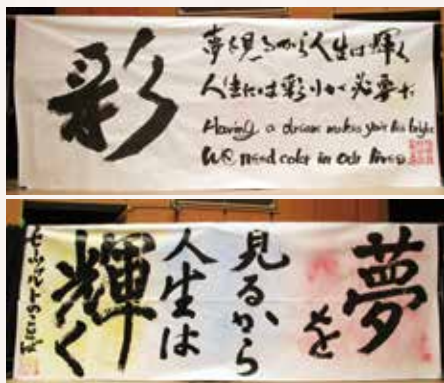 彩
夢を見るから人生は輝く
人生には彩りが必要だ
Having a dream makes your life bright
We need color in our lives
夢
を
見るから
人生は
輝く
モーツァルトのことば